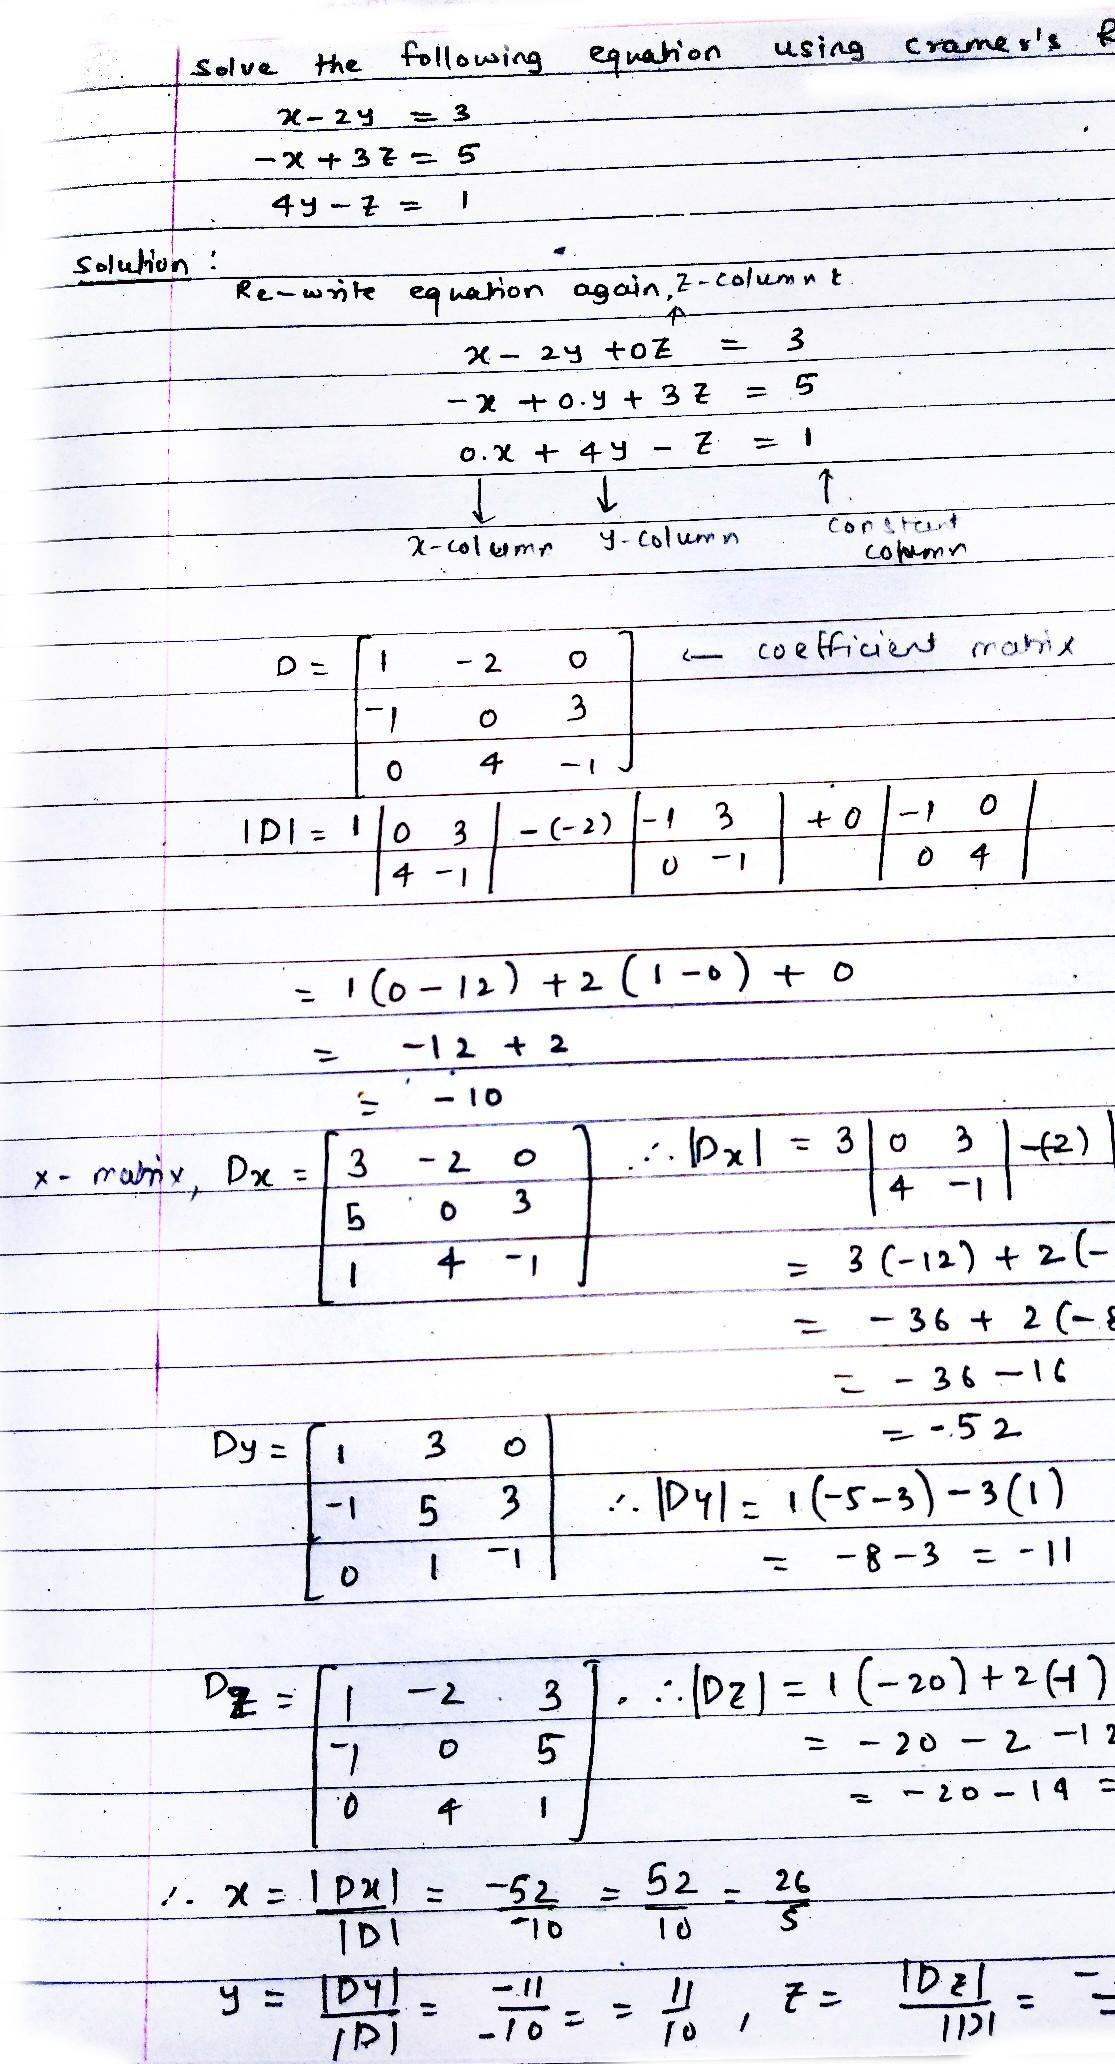 Solve the following equation using cramer's R
x - 2y = 3
-x + 3z = 5
4y - z = 1
Solution :
Re-write equation again, z-column ↑
x - 2y + 0z = 3
-x + 0.y + 3z = 5
0.x + 4y - z = 1
↓ ↓ ↑
x-column y-column constant
column
D = [ 1 -2 0 ] ← coefficient matrix
-1 0 3
0 4 -1
|D| = 1 | 0 3 | - (-2) | -1 3 | + 0 | -1 0 |
4 -1 0 -1 0 4
= 1(0 - 12) + 2(1 - 0) + 0
= -12 + 2
= -10
x-matrix, Dx = [ 3 -2 0 ] ∴ |Dx| = 3 | 0 3 | -(2) |
5 0 3 4 -1
1 4 -1 = 3(-12) + 2(-
= -36 + 2(-8
= -36 - 16
= -52
Dy = [ 1 3 0
-1 5 3 ∴ |Dy| = 1(-5-3) - 3(1)
0 1 -1 = -8 - 3 = -11
Dz = [ 1 -2 3 ] . ∴ |Dz| = 1(-20) + 2(-1)
-1 0 5 = -20 - 2 - 12
0 4 1 = -20 - 14 =
∴ x = |Dx| / |D| = -52 / -10 = 52 / 10 = 26 / 5
y = |Dy| / |D| = -11 / -10 = = 11 / 10 , z = |Dz| / |D| = -